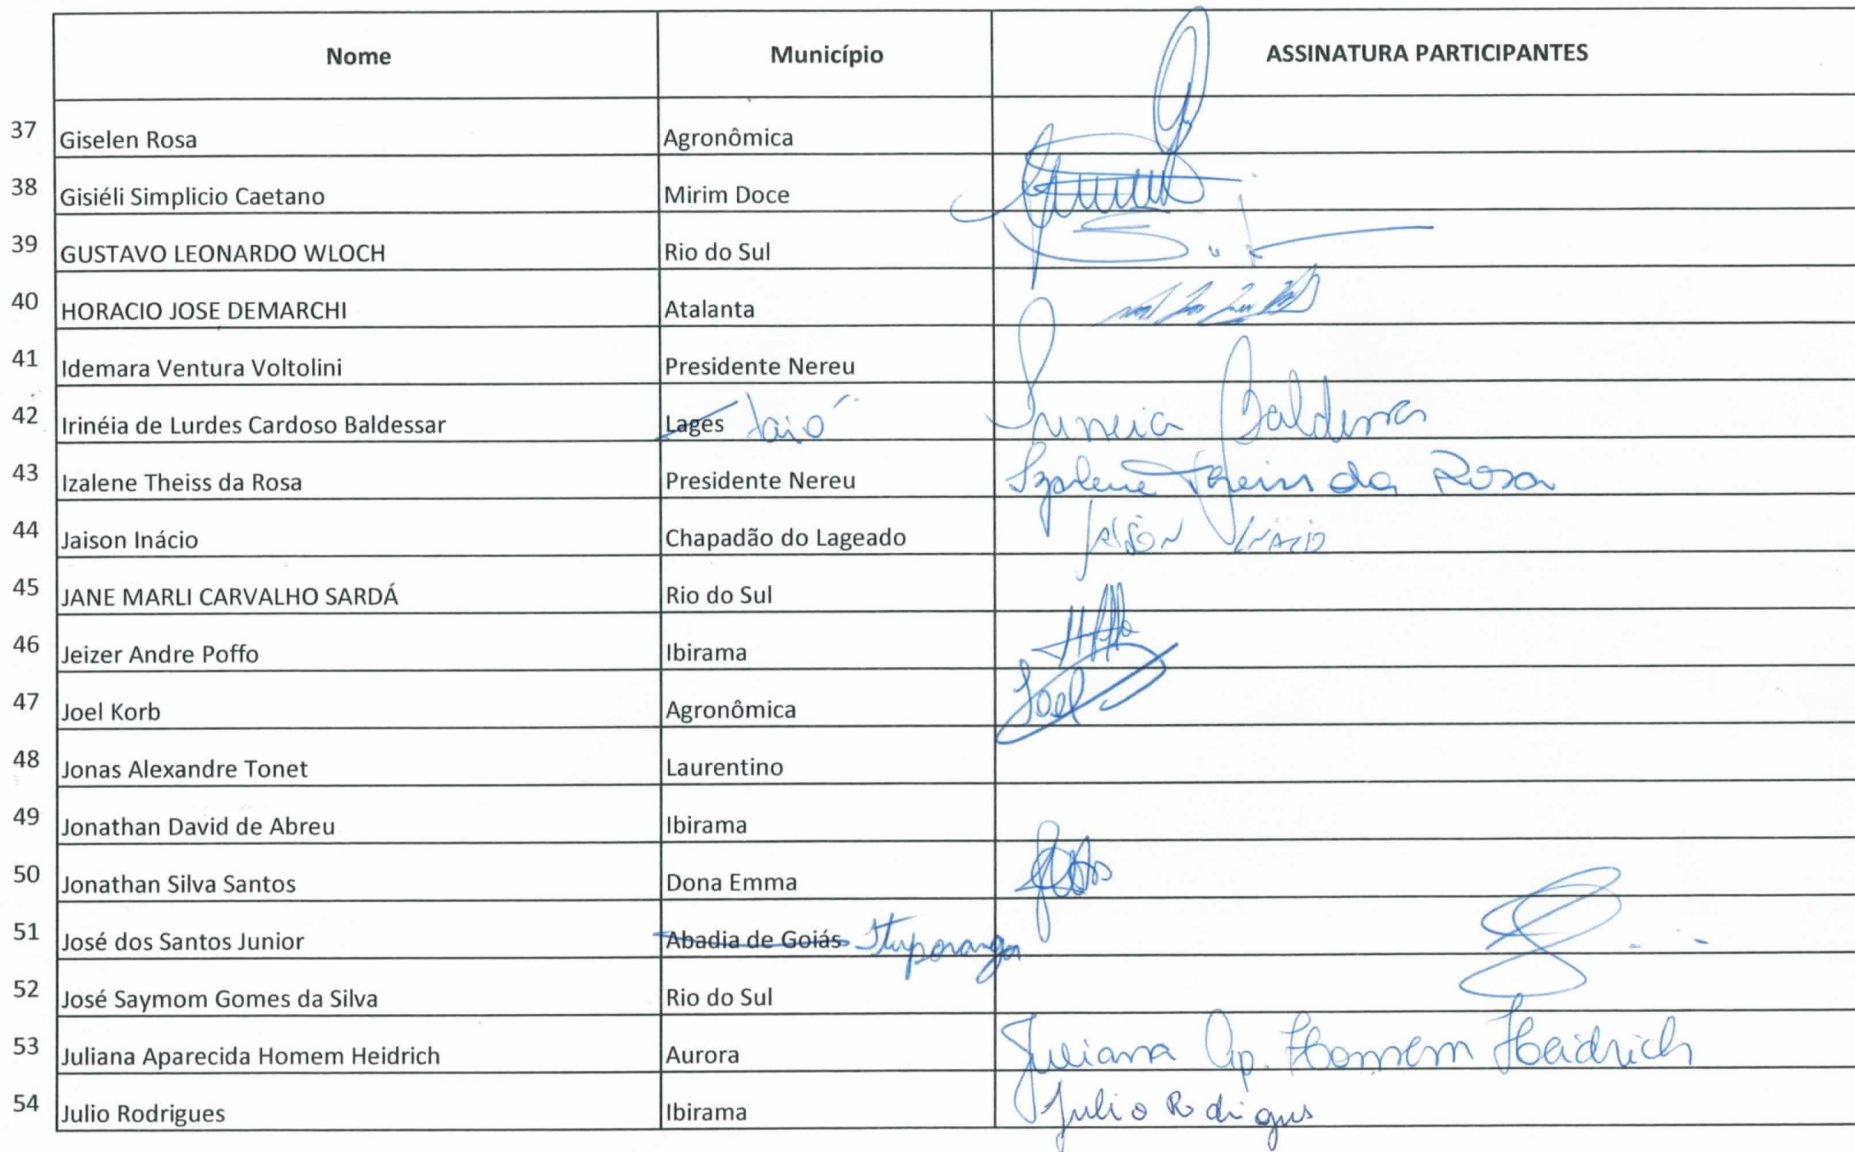 Nome Município ASSINATURA PARTICIPANTES
37 Giselen Rosa Agronômica
38 Gisiéli Simplicio Caetano Mirim Doce
39 GUSTAVO LEONARDO WLOCH Rio do Sul
40 HORACIO JOSE DEMARCHI Atalanta
41 Idemara Ventura Voltolini Presidente Nereu
42 Irinéia de Lurdes Cardoso Baldessar Lages Taió Irineia Baldessar
43 Izalene Theiss da Rosa Presidente Nereu Izalene Theiss da Rosa
44 Jaison Inácio Chapadão do Lageado JAISON INÁCIO
45 JANE MARLI CARVALHO SARDÁ Rio do Sul
46 Jeizer Andre Poffo Ibirama
47 Joel Korb Agronômica Joel
48 Jonas Alexandre Tonet Laurentino
49 Jonathan David de Abreu Ibirama
50 Jonathan Silva Santos Dona Emma
51 José dos Santos Junior Abadia de Goiás Ituporanga
52 José Saymom Gomes da Silva Rio do Sul
53 Juliana Aparecida Homem Heidrich Aurora Juliana Ap. Homem Heidrich
54 Julio Rodrigues Ibirama Julio Rodrigus